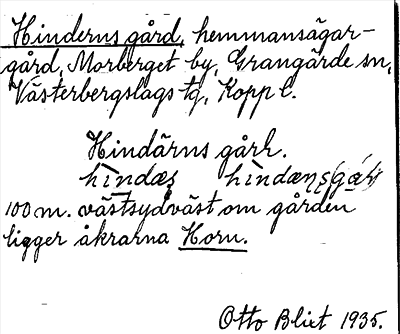 Hinderns gård, hemmansägar-
gård, Morberget by, Grangärde sn,
Västerbergslags tg, Kopp l.
Hindärns gårk.
100 m. västsydväst om gården
ligger åkrarna Horn.
Otto Blixt 1935.